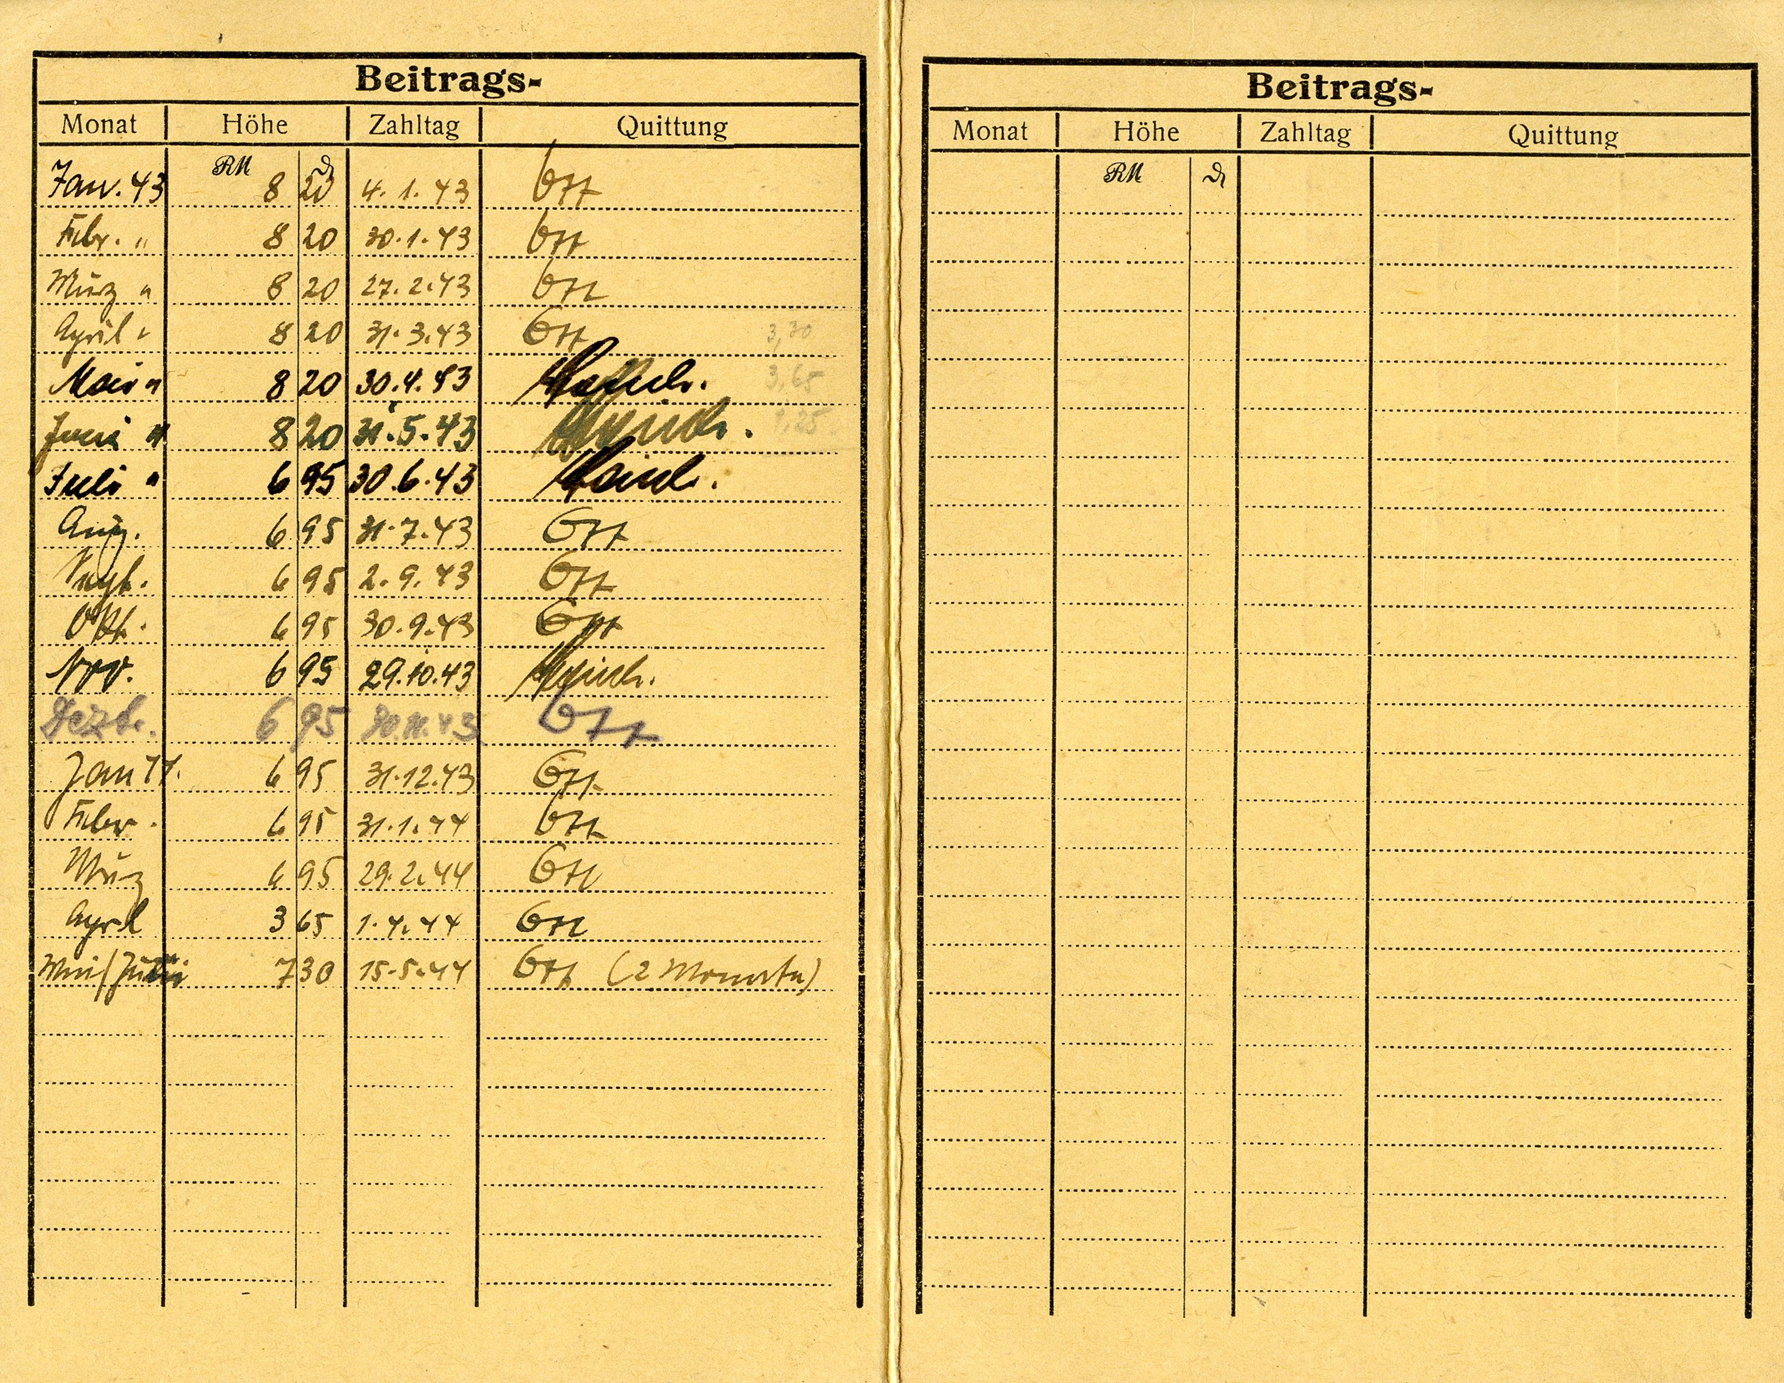 Beitrags-
Monat Höhe Zahltag Quittung
RM ₰
Jan. 43 8 20 4.1.43 Ott
Febr. " 8 20 30.1.43 Ott
März " 8 20 27.2.43 Ott
April " 8 20 31.3.43 Ott 3,30
Mai " 8 20 30.4.43 3,65
Juni " 8 20 31.5.43 1,25
Juli " 6 95 30.6.43
Aug. 6 95 31.7.43 Ott
Sept. 6 95 2.9.43 Ott
Okt. 6 95 30.9.43 Ott
Nov. 6 95 29.10.43
Dezb. 6 95 30.11.43 Ott
Jan 44. 6 95 31.12.43 Ott
Febr. 6 95 31.1.44 Ott
März 6 95 29.2.44 Ott
April 3 65 1.4.44 Ott
Mai/Juni 7 30 15.5.44 Ott (2 Monate)
Beitrags-
Monat Höhe Zahltag Quittung
RM ₰